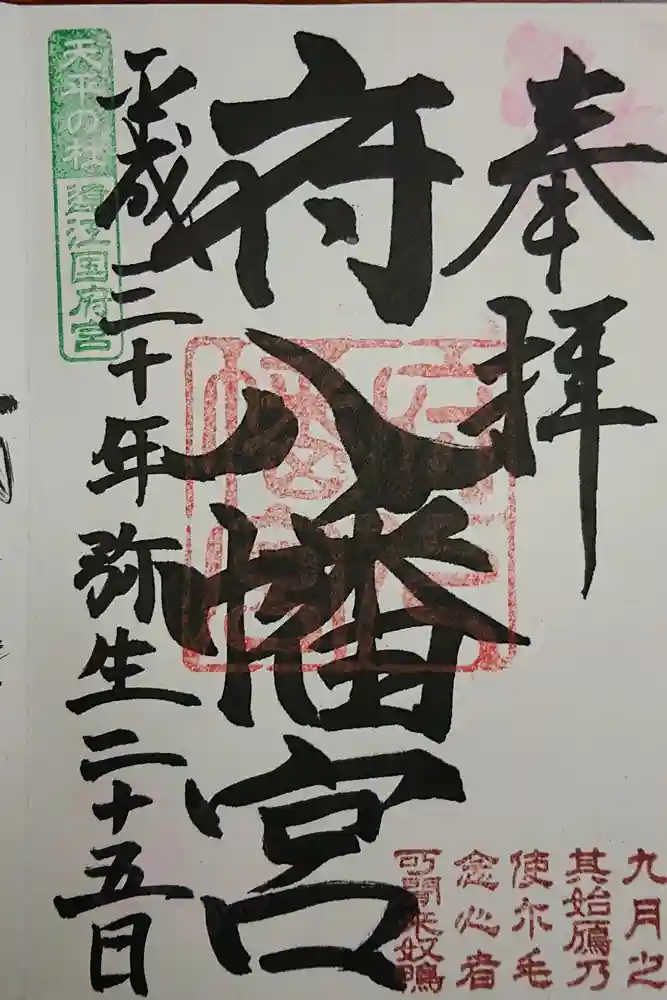 奉拝
府八幡宮
平成三十年弥生二十五日
天平の社
遠江国府宮
府八
幡宮
九月之
其始鴈乃
使尓毛
念心者
可聞来奴鴨